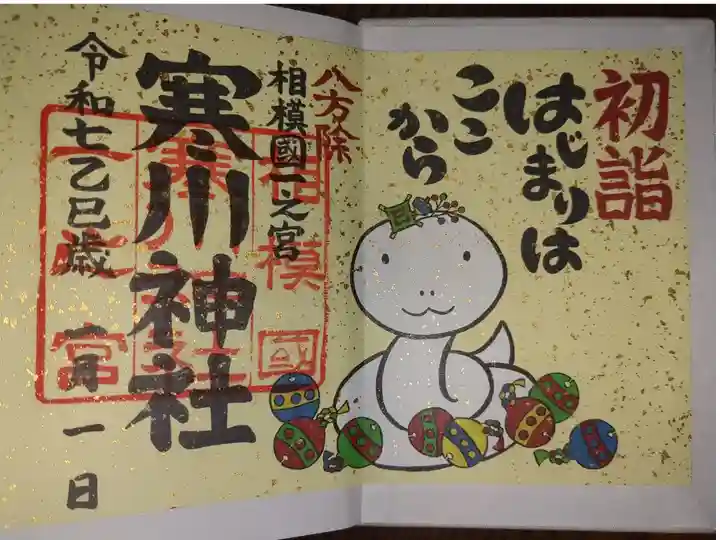 初詣
はじまりは
ここ
から
八方除
相模國一之宮
寒川神社
令和七乙巳歳 一月 一日
相模國
寒川神社
一之宮